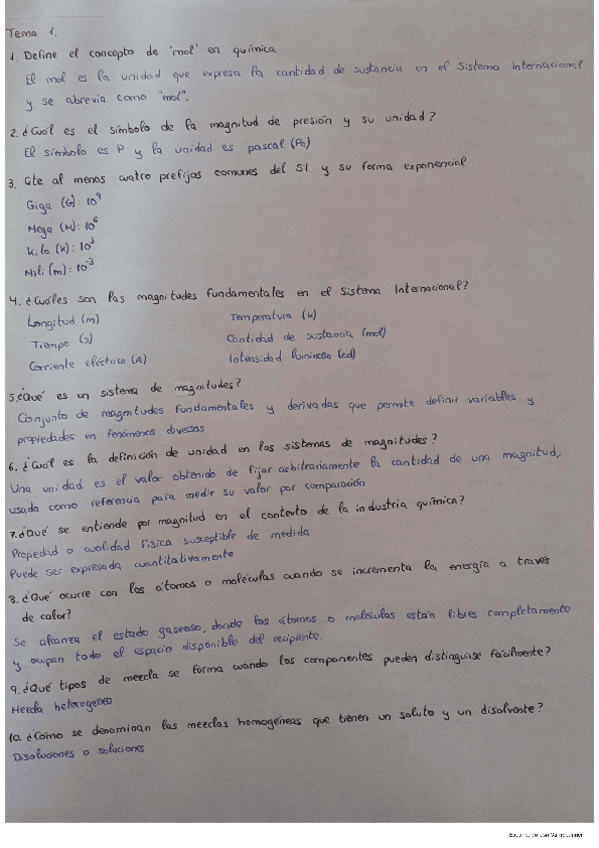 Tema 1.
1. Define el concepto de 'mol' en química
El mol es la unidad que expresa la cantidad de sustancia en el Sistema Internacional
y se abrevia como "mol".
2. ¿Cuál es el símbolo de la magnitud de presión y su unidad?
El símbolo es P y la unidad es pascal (Pa)
3. Cite al menos cuatro prefijos comunes del SI y su forma exponencial
Giga (G): 10⁹
Mega (M): 10⁶
Kilo (K): 10³
Mili (m): 10⁻³
4. ¿Cuáles son las magnitudes fundamentales en el Sistema Internacional?
Longitud (m) Temperatura (K)
Tiempo (s) Cantidad de sustancia (mol)
Corriente eléctrica (A) Intensidad luminosa (cd)
5. ¿Qué es un sistema de magnitudes?
Conjunto de magnitudes fundamentales y derivadas que permite definir variables y
propiedades en fenómenos diversos
6. ¿Cuál es la definición de unidad en los sistemas de magnitudes?
Una unidad es el valor obtenido de fijar arbitrariamente la cantidad de una magnitud,
usada como referencia para medir su valor por comparación
7. ¿Qué se entiende por magnitud en el contexto de la industria química?
Propiedad o cualidad física susceptible de medida
Puede ser expresada cuantitativamente
8. ¿Qué ocurre con los átomos o moléculas cuando se incrementa la energía a través
de calor?
Se alcanza el estado gaseoso, donde los átomos o moléculas están libres completamente
y ocupan todo el espacio disponible del recipiente.
9. ¿Qué tipos de mezcla se forma cuando los componentes pueden distinguise fácilmente?
Mezcla heterogénea
10. ¿Cómo se denominan las mezclas homogéneas que tienen un soluto y un disolvente?
Disoluciones o soluciones